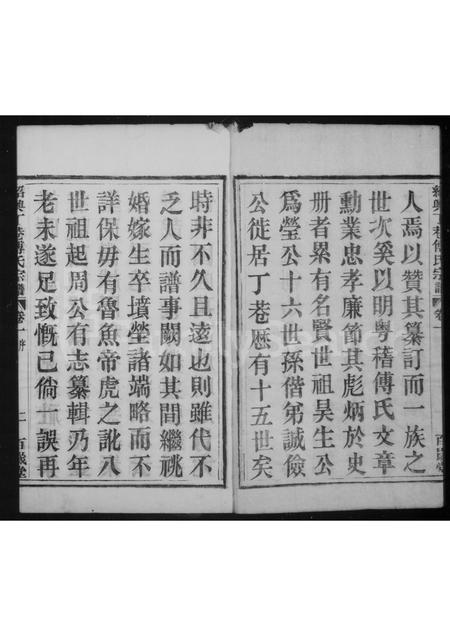 人焉以贊其纂訂而一族之
世次奚以明粤稽傅氏文章
勳業忠孝廉節其彪炳於史
册者累有名賢世祖昊生公
爲瑩公十六世孫偕弟誠儉
公徙居丁巷歷有十五世矣
時非不久且遠也則雖代不
乏人而譜事闕如其間繼祧
婚嫁生卒墳塋諸端略而不
詳保毋有魯魚帝虎之訛八
世祖起周公有志纂輯乃年
老未遂足致慨已倘一誤再
紹興丁巷傅氏宗譜 卷一 二 百嵗堂